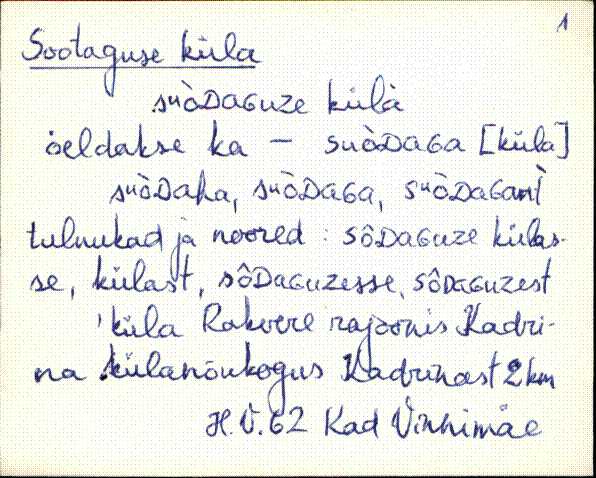 1
Sootaguse küla
suòDAGUZE külà
öeldakse ka — suòDAGA [küla]
suòDAha, suòDAGA, suòDAGANT
tulnukad ja noored: sôDAGUZE külas-
se, külast, sôDAGUZEsse, sôDAGUZEst
'küla Rakvere rajoonis Kadri-
na külanõukogus Kadrinast 2 km
H.V.62 Kad Vinnimäe